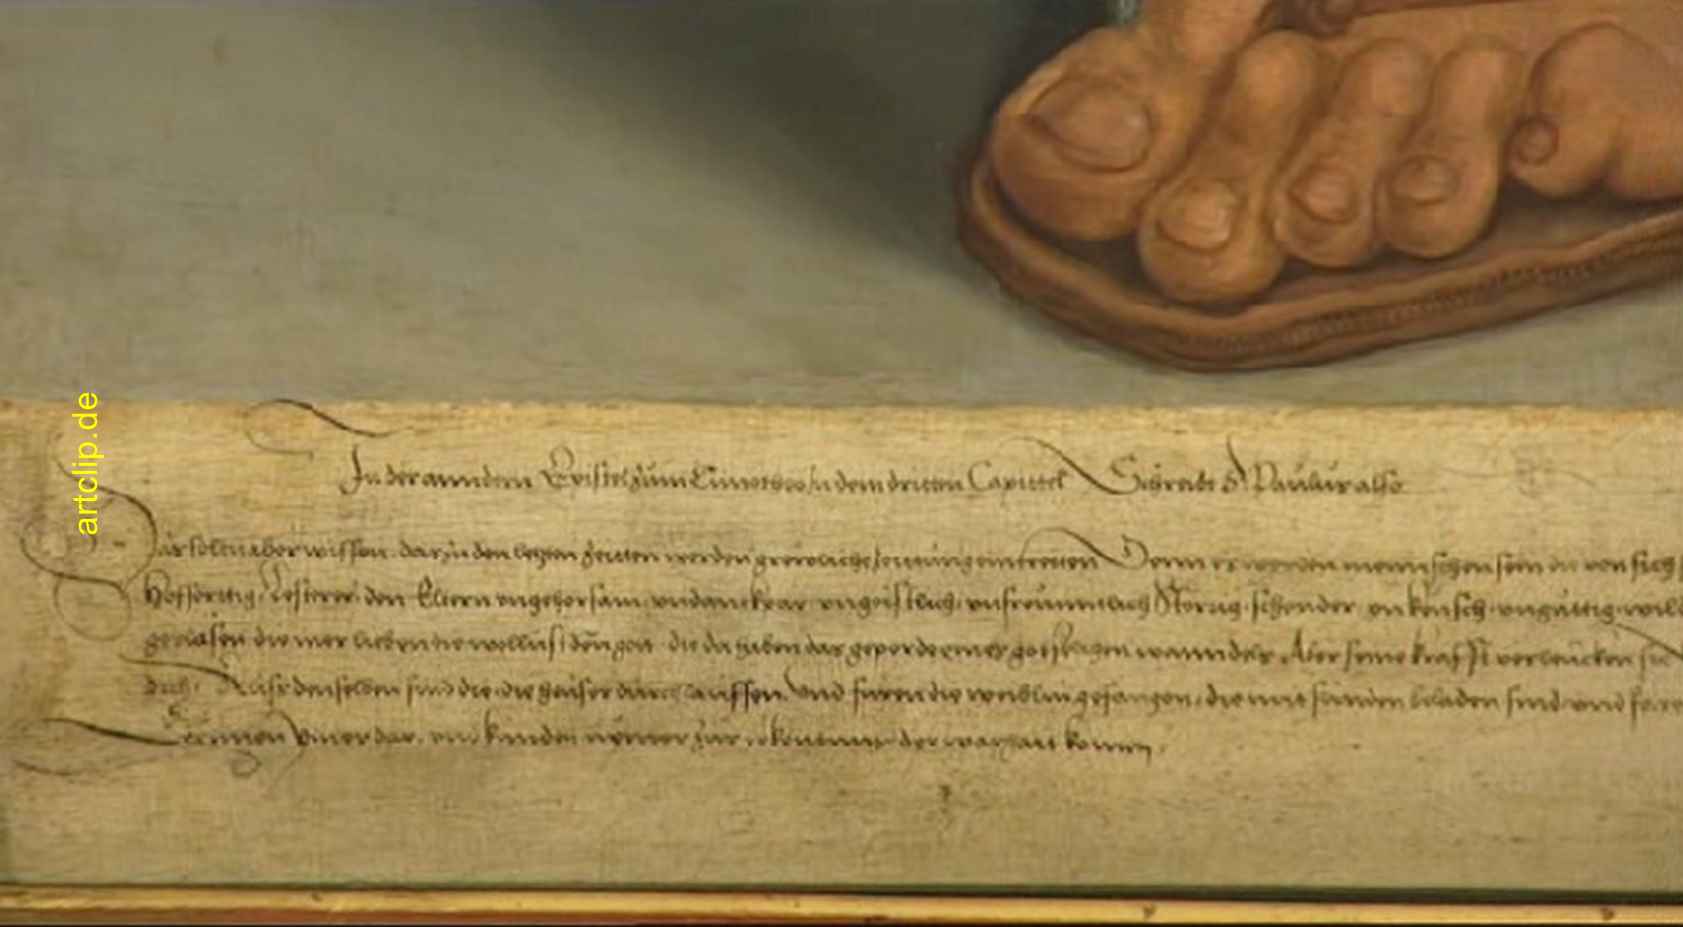 artclip.de
In der anndern Epistel zum Timotheo in dem dritten Capittel Schreibt S Paulus also
Das sollt aber wissen das zu den letzten zeitten werden grewliche zeittung eintretten Denn es werden mennschen sein die von sich
Hoffertig Lesterer den Eltern ungehorsam undanckbar ungeistlich unfreunntlich Störrig schender unkeusch unguttig wild
geplasen die mer lieben die wollust dann got die da haben das geperde eines gotseligen wanndels Aber seine krafft verleucken sie
dich Auss denselben sind die die heuser durchlauffen Und furen die weiblin gefangen die mit sunden beladen sind und faren
Lernnen ymerdar und kunden nymer zur erkanntnus der warhait komen